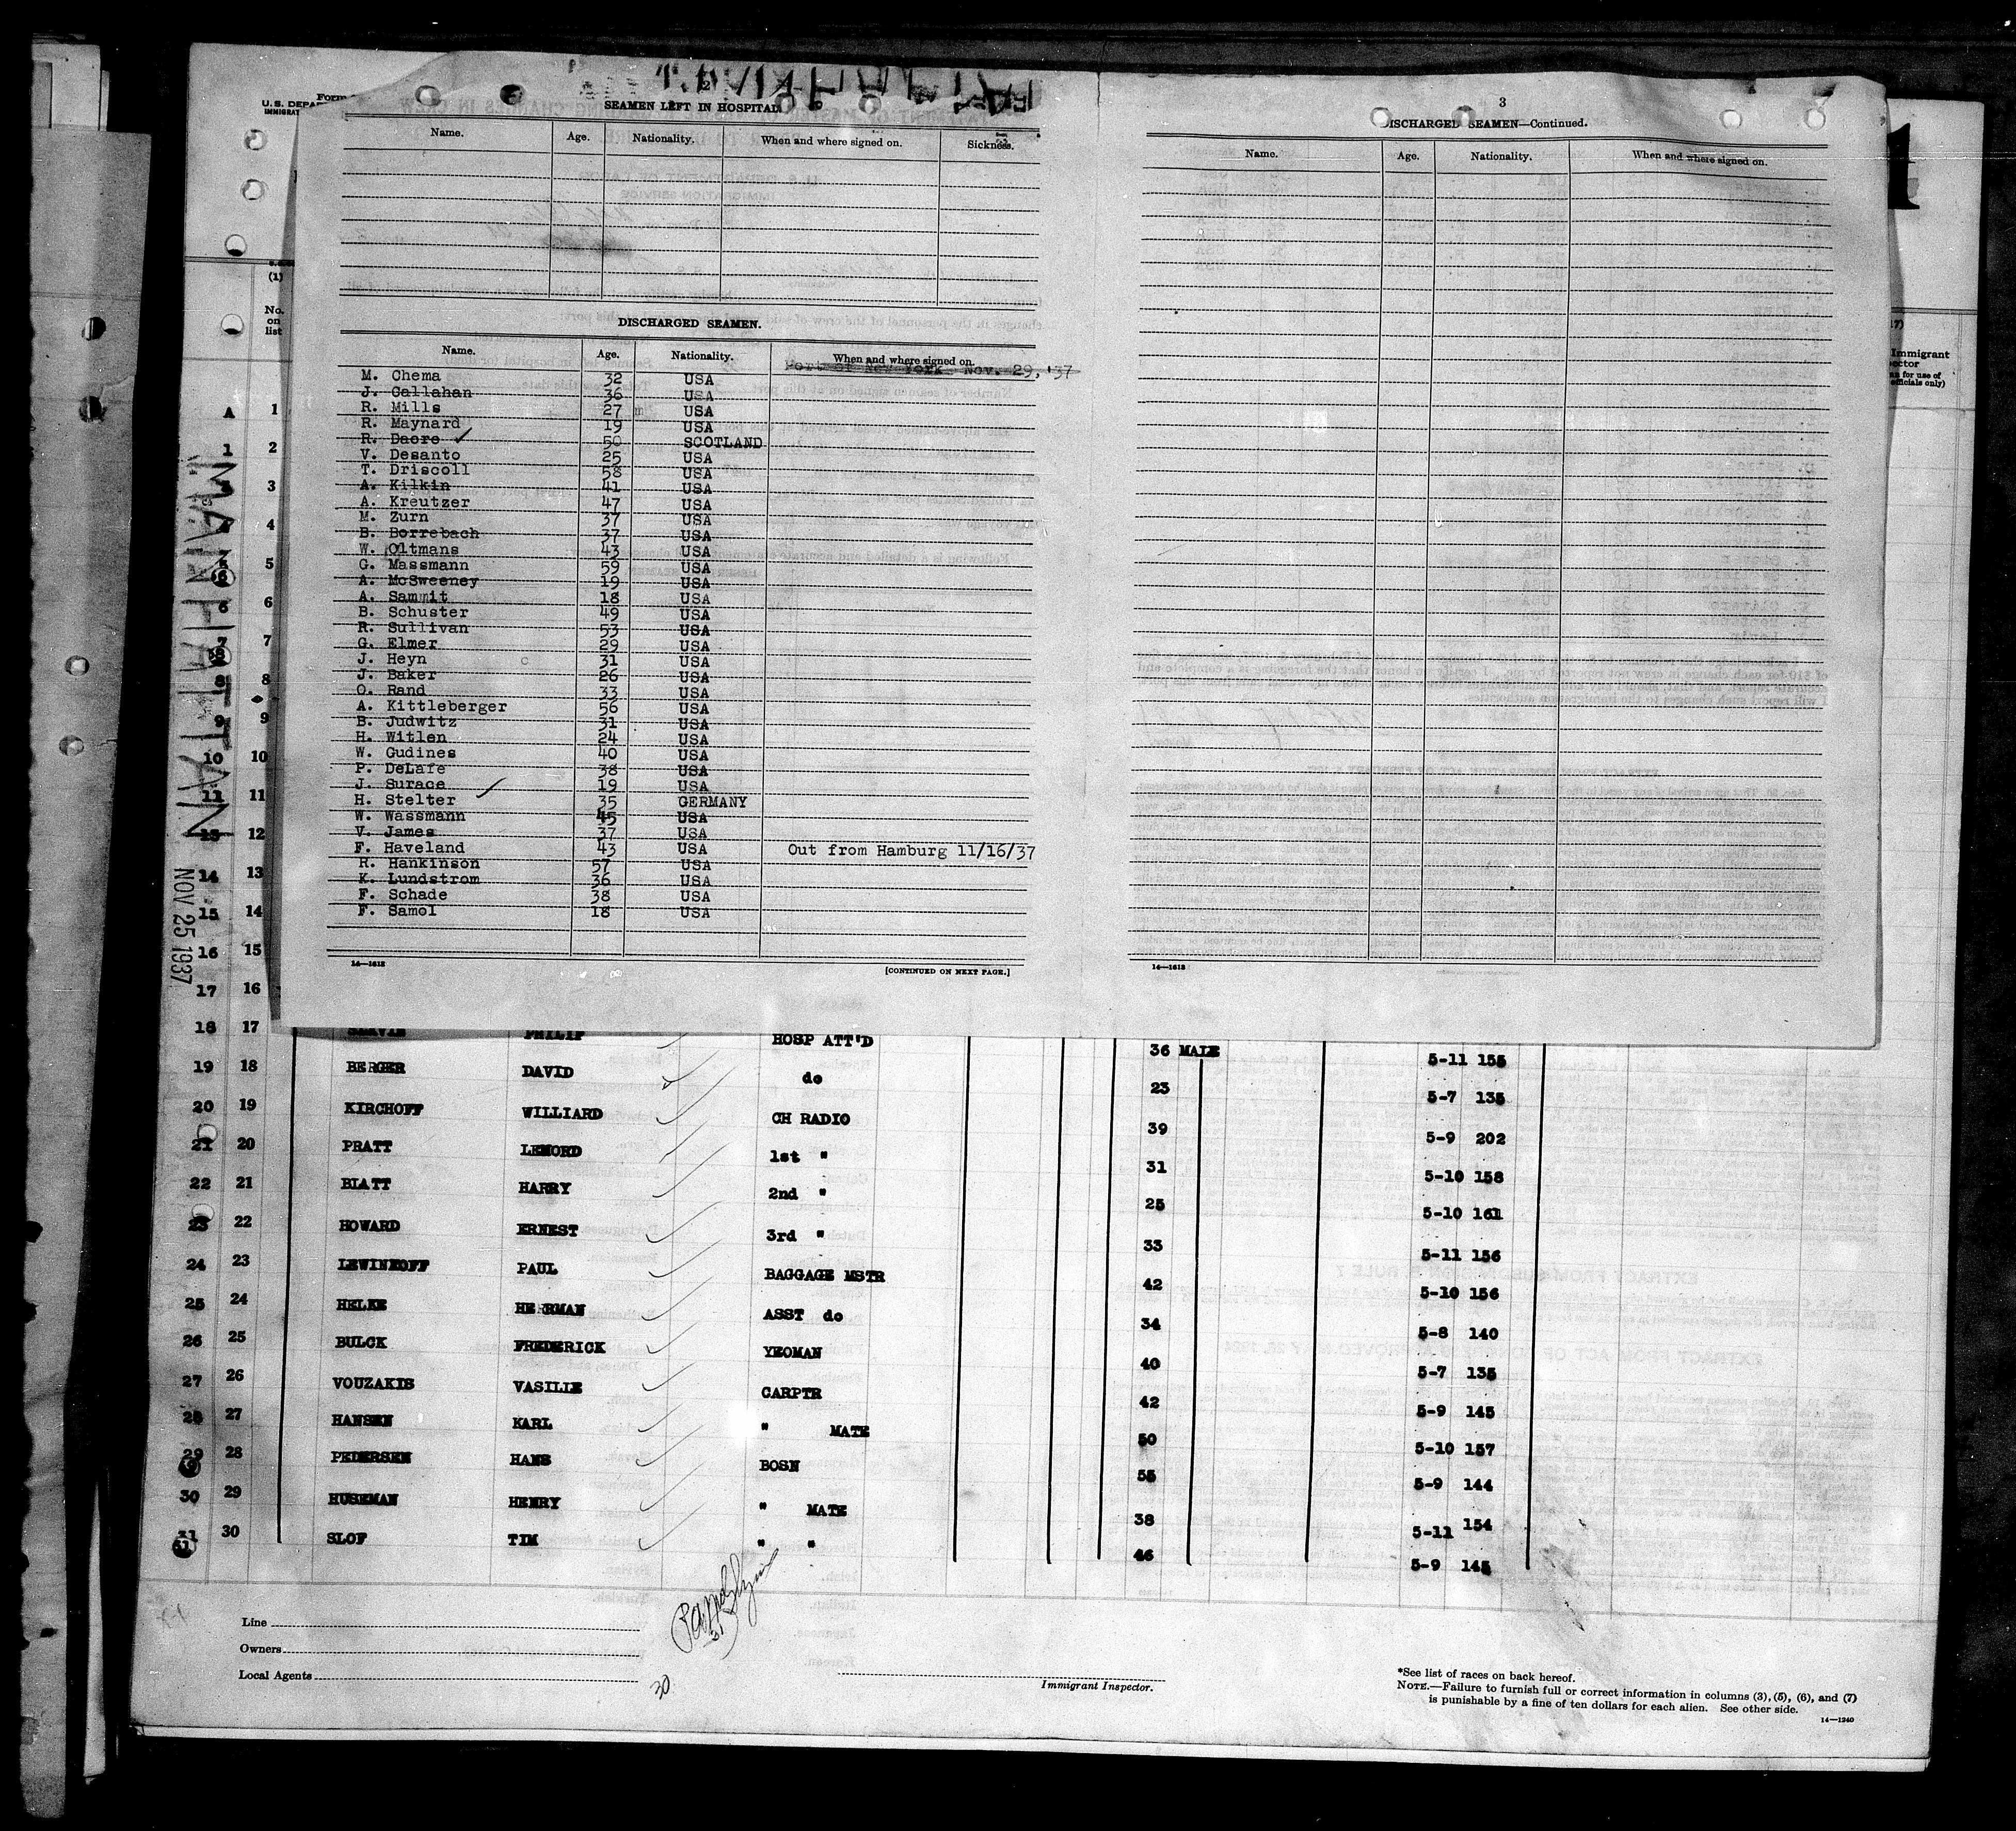 2
SEAMEN LEFT IN HOSPITAL.
Name. Age. Nationality. When and where signed on. Sickness.
DISCHARGED SEAMEN.
Name. Age. Nationality. When and where signed on.
Port of New York Nov. 29, '37
M. Chema 32 USA
J. Callahan 36 USA
R. Mills 27 USA
R. Maynard 19 USA
R. Dacre ✓ 50 SCOTLAND
V. Desanto 25 USA
T. Driscoll 58 USA
A. Kilkin 41 USA
A. Kreutzer 47 USA
M. Zurn 37 USA
B. Borrebach 37 USA
W. Oltmans 43 USA
G. Massmann 59 USA
A. McSweeney 19 USA
A. Sammit 18 USA
B. Schuster 49 USA
R. Sullivan 53 USA
G. Elmer 29 USA
J. Heyn 31 USA
J. Baker 26 USA
O. Rand 33 USA
A. Kittleberger 56 USA
B. Judwitz 31 USA
H. Witlen 24 USA
W. Gudines 40 USA
P. DeLafe 38 USA
J. Surace 19 USA
H. Stelter ✓ 35 GERMANY
W. Wassmann 45 USA
V. James 37 USA
F. Haveland 43 USA Out from Hamburg 11/16/37
R. Hankinson 57 USA
K. Lundstrom 36 USA
F. Schade 38 USA
F. Samol 18 USA
14—1613
[CONTINUED ON NEXT PAGE.]
3
DISCHARGED SEAMEN—Continued.
Name. Age. Nationality. When and where signed on.
14—1613
U.S. DEPAR
IMMIGRAT
(1)
No. on list
Immigrant
MANHATTAN
NOV 25 1937
A 1
1 2
3
4
5
6 6
7 7
8 8
9 9
10 10
11 11
13 12
14 13
15 14
16 15
17 16
18 17 PHILIP HOSP ATT'D 36 MALE 5-11 155
19 18 BERGER DAVID do 23 5-7 135
20 19 KIRCHOFF WILLIARD CH RADIO 39 5-9 202
21 20 PRATT LEMORD 1st " 31 5-10 158
22 21 BLATT HARRY 2nd " 25 5-10 161
23 22 HOWARD ERNEST 3rd " 33 5-11 156
24 23 LEWINKOFF PAUL BAGGAGE MSTR 42 5-10 156
25 24 HELKE HERMAN ASST do 34 5-8 140
26 25 BULCK FREDERICK YEOMAN 40 5-7 135
27 26 VOUZAKIS VASILLE CARPTR 42 5-9 145
28 27 HANSEN KARL " MATE 50 5-10 157
29 28 PEDERSEN HANS BOSN 55 5-9 144
30 29 HUSEMAN HENRY " MATE 38 5-11 154
31 30 SLOF TIM " " 46 5-9 145
Line
Owners
Local Agents
30
Immigrant Inspector.
*See list of races on back hereof.
NOTE.—Failure to furnish full or correct information in columns (3), (5), (6), and (7)
is punishable by a fine of ten dollars for each alien. See other side.
14—1240